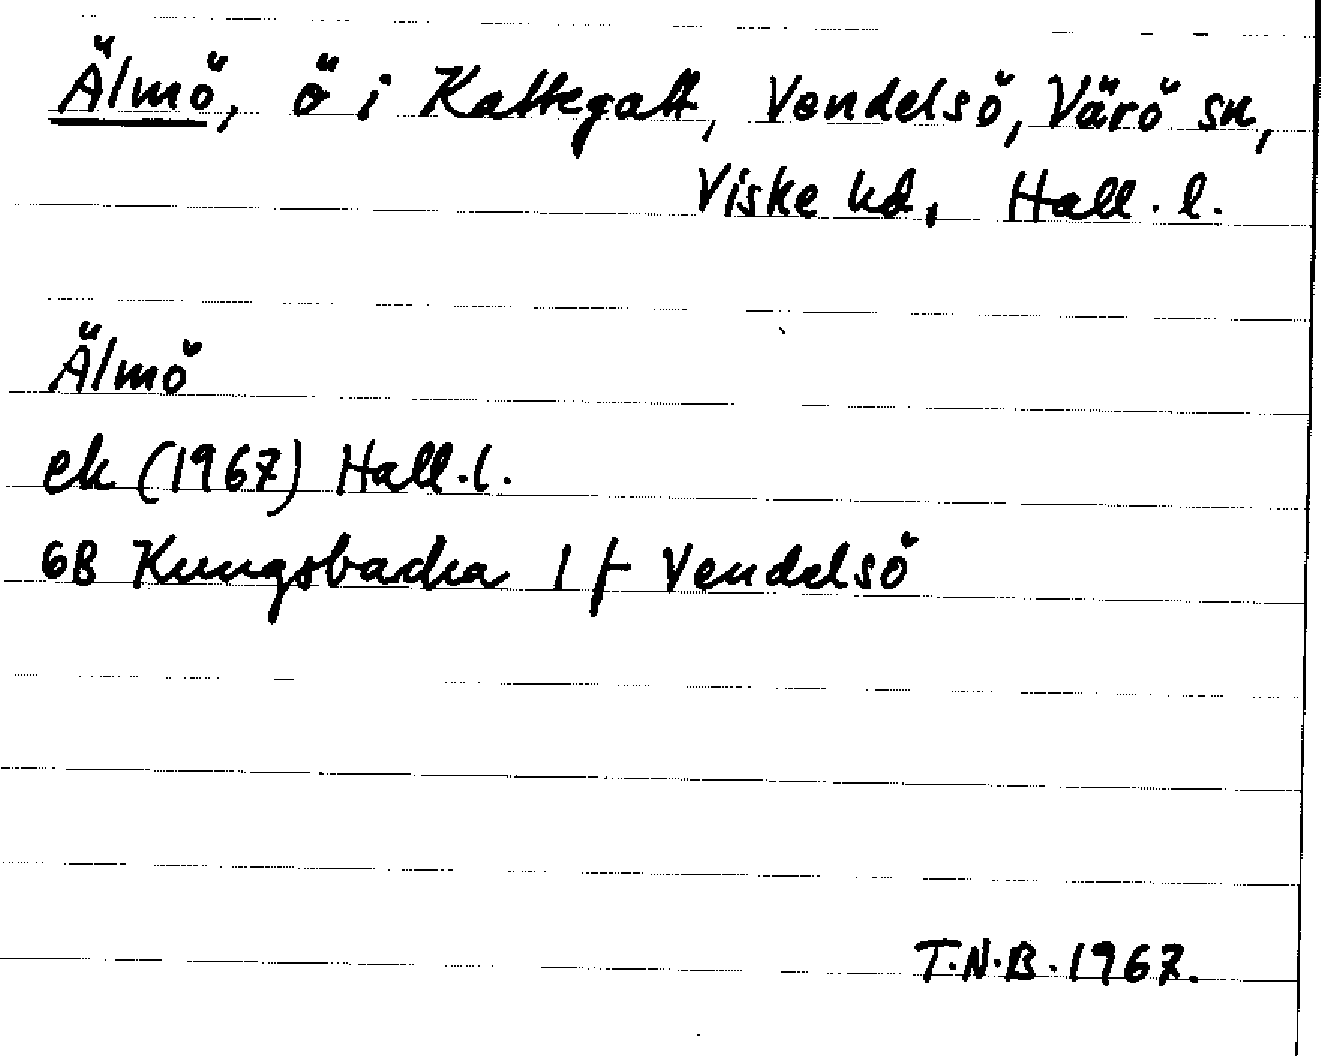 Älmö, ö i Kattegatt, Vendelsö, Värö sn,
Viske hd, Hall. l.
Älmö
ek (1967) Hall. l.
6B Kungsbacka 1 f Vendelsö
T.N.B. 1967.